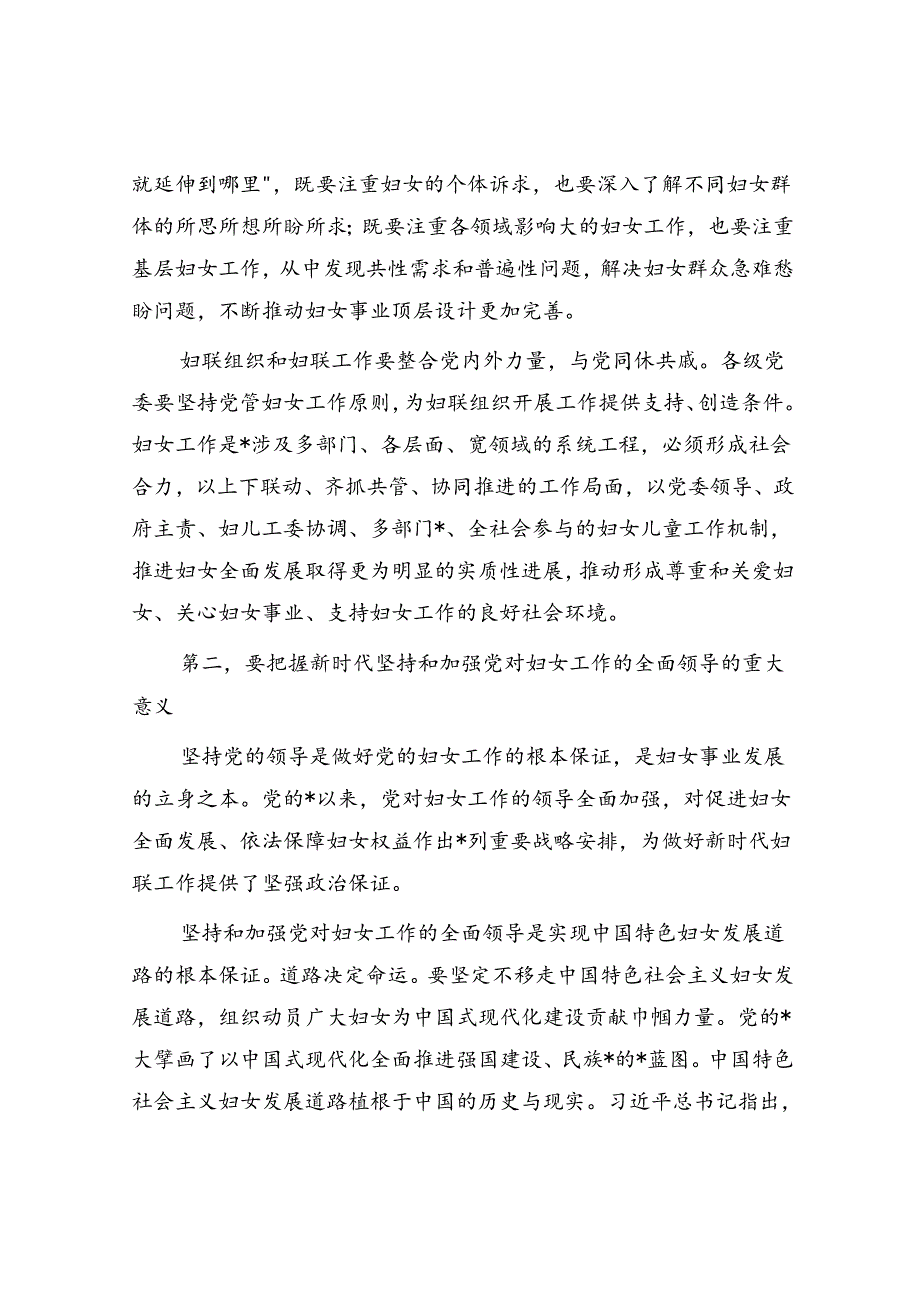 就延伸到哪里"，既要注重妇女的个体诉求，也要深入了解不同妇女群
体的所思所想所盼所求；既要注重各领域影响大的妇女工作，也要注重
基层妇女工作，从中发现共性需求和普遍性问题，解决妇女群众急难愁
盼问题，不断推动妇女事业顶层设计更加完善。
妇联组织和妇联工作要整合党内外力量，与党同休共戚。各级党
委要坚持党管妇女工作原则，为妇联组织开展工作提供支持、创造条件。
妇女工作是*涉及多部门、各层面、宽领域的系统工程，必须形成社会
合力，以上下联动、齐抓共管、协同推进的工作局面，以党委领导、政
府主责、妇儿工委协调、多部门*、全社会参与的妇女儿童工作机制，
推进妇女全面发展取得更为明显的实质性进展，推动形成尊重和关爱妇
女、关心妇女事业、支持妇女工作的良好社会环境。
第二，要把握新时代坚持和加强党对妇女工作的全面领导的重大
意义
坚持党的领导是做好党的妇女工作的根本保证，是妇女事业发展
的立身之本。党的*以来，党对妇女工作的领导全面加强，对促进妇女
全面发展、依法保障妇女权益作出*列重要战略安排，为做好新时代妇
联工作提供了坚强政治保证。
坚持和加强党对妇女工作的全面领导是实现中国特色妇女发展道
路的根本保证。道路决定命运。要坚定不移走中国特色社会主义妇女发
展道路，组织动员广大妇女为中国式现代化建设贡献巾帼力量。党的*
大擘画了以中国式现代化全面推进强国建设、民族*的*蓝图。中国特色
社会主义妇女发展道路植根于中国的历史与现实。习近平总书记指出，